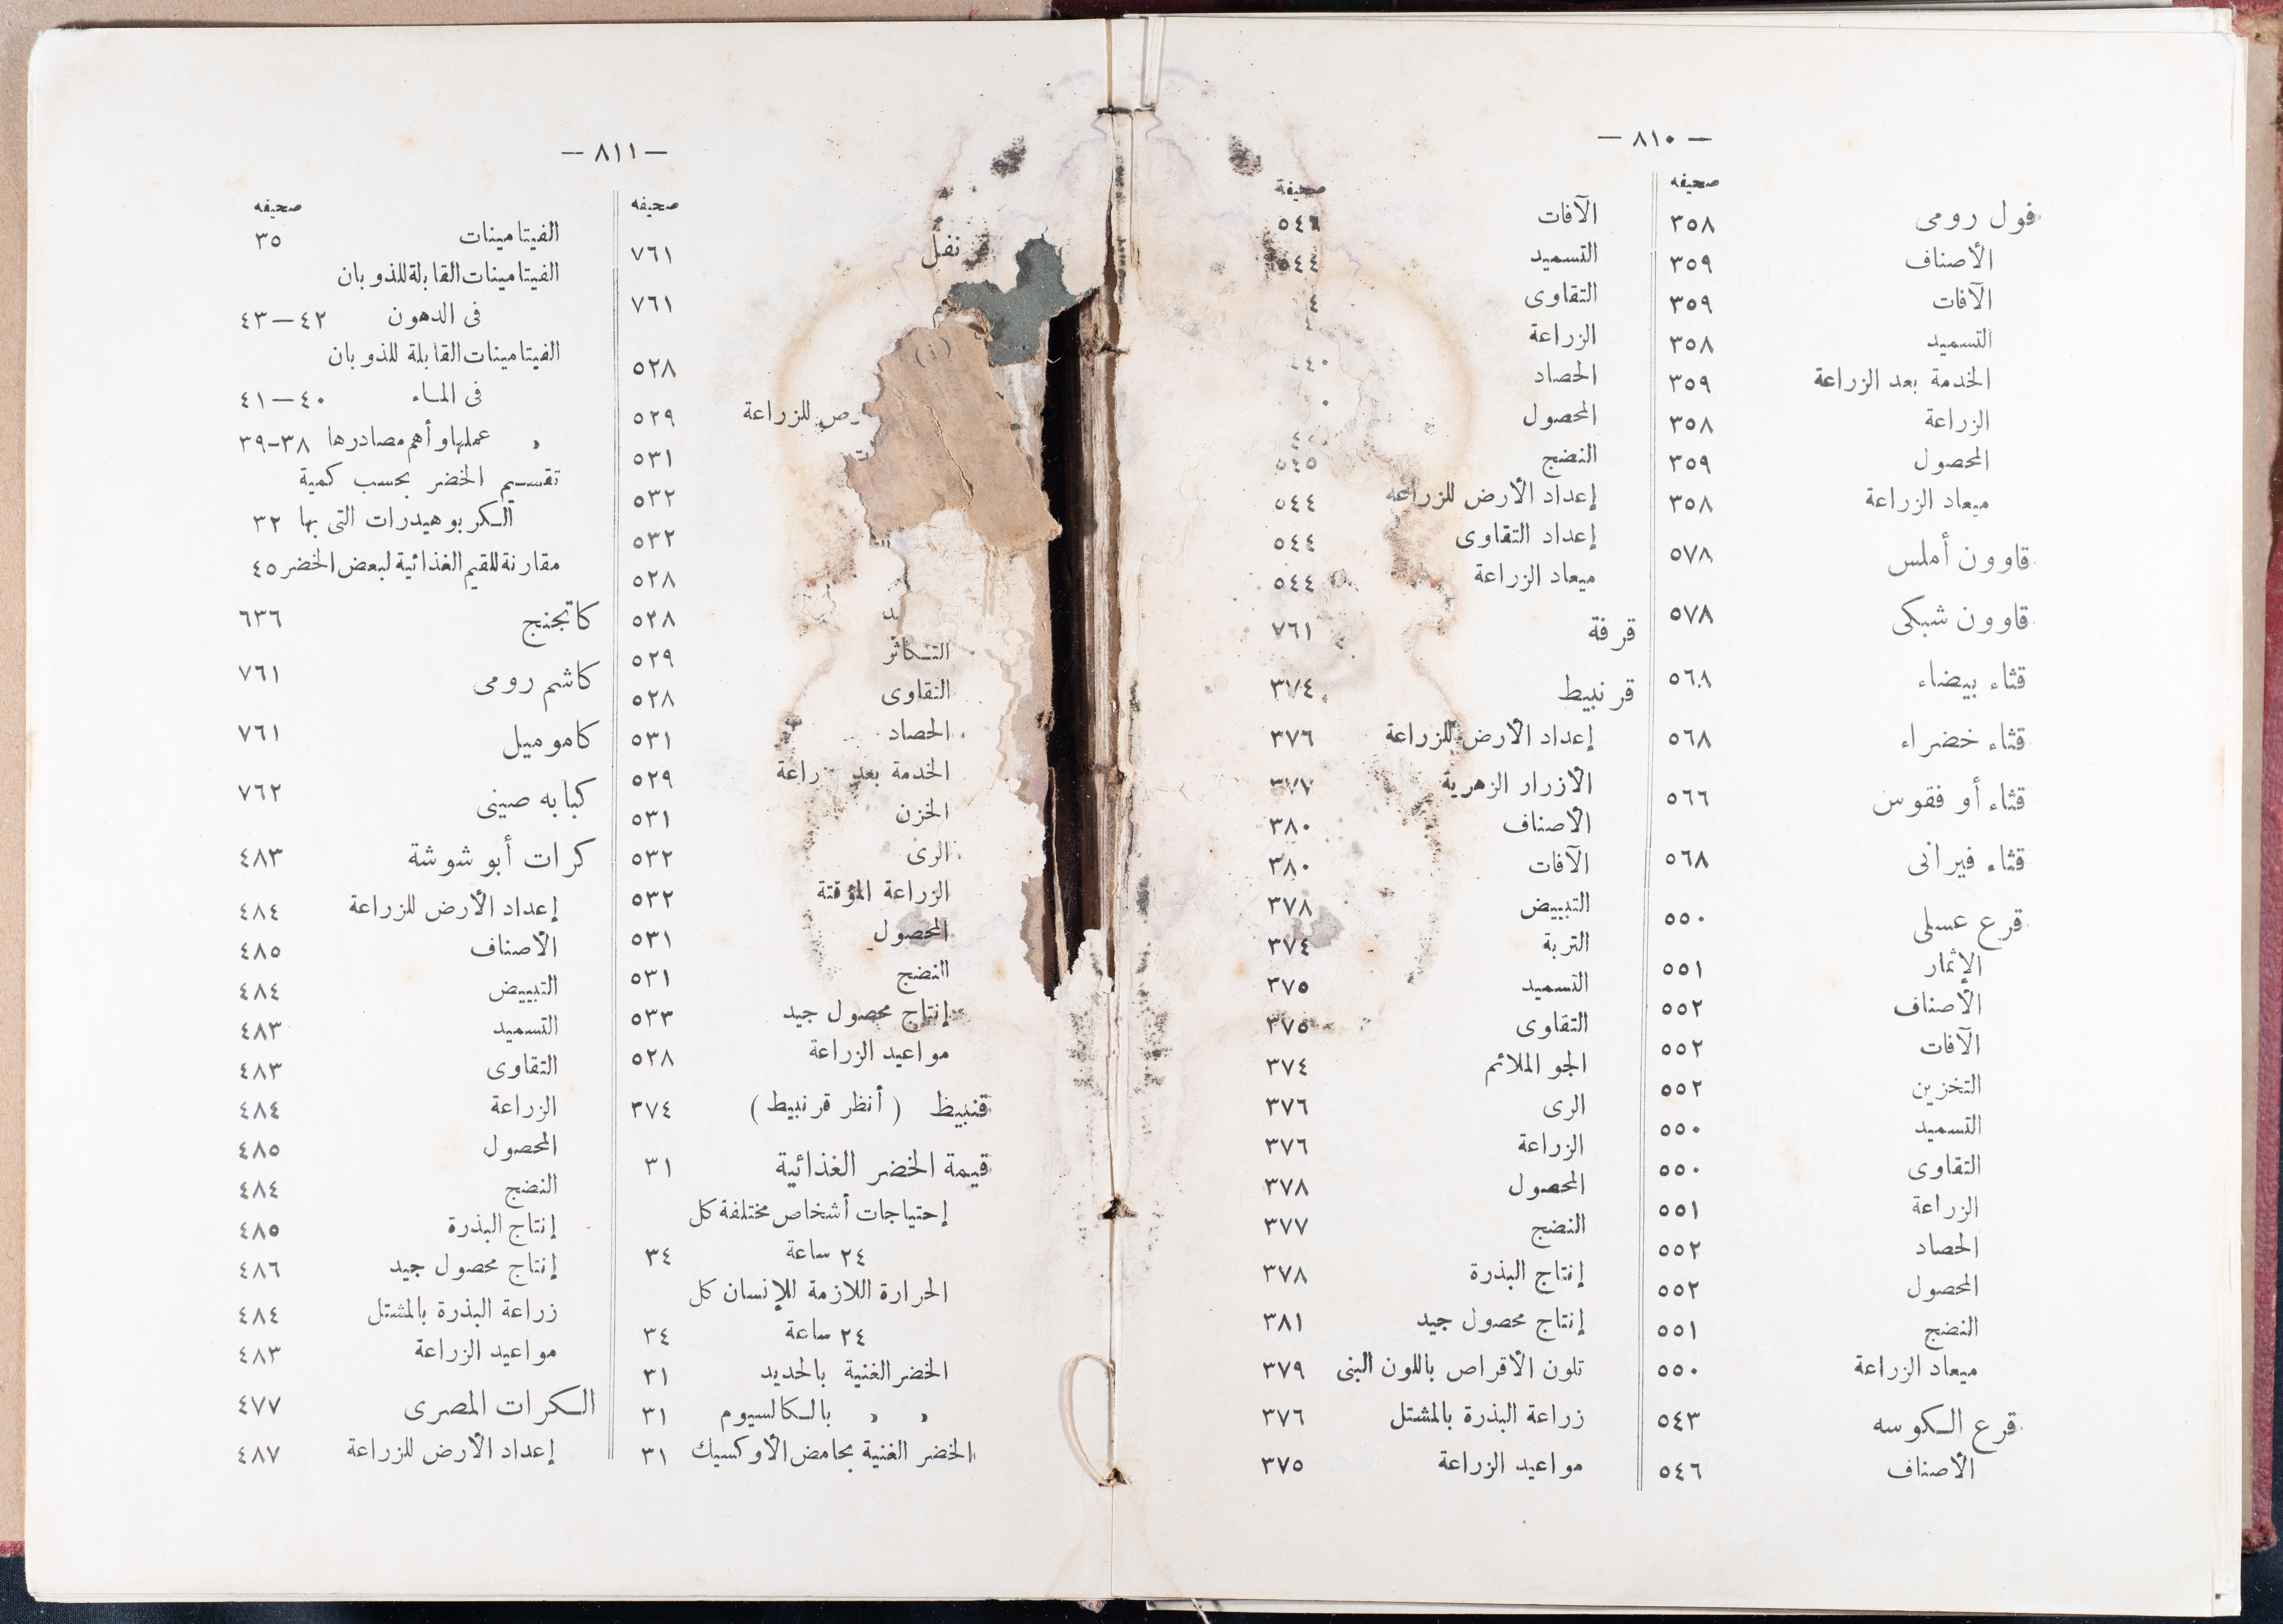 — ٨١٠ —
صحيفه
فول رومى ٣٥٨
الأصناف ٣٥٩
الآفات ٣٥٩
التسميد ٣٥٨
الخدمة بعد الزراعة ٣٥٩
الزراعة ٣٥٨
المحصول ٣٥٩
ميعاد الزراعة ٣٥٨
قاوون أملس ٥٧٨
قاوون شبكى ٥٧٨
قثاء بيضاء ٥٦٨
قثاء خضراء ٥٦٨
قثاء أو فقوس ٥٦٦
قثاء فيرانى ٥٦٨
قرع عسلى ٥٥٠
الإثمار ٥٥١
الأصناف ٥٥٢
الآفات ٥٥٢
التخزين ٥٥٢
التسميد ٥٥٠
التقاوى ٥٥٠
الزراعة ٥٥١
الحصاد ٥٥٢
المحصول ٥٥٢
النضج ٥٥١
ميعاد الزراعة ٥٥٠
قرع الكوسه ٥٤٣
الأصناف ٥٤٦
صحيفة
الآفات ٥٤٦
التسميد ٥٤٤
التقاوى
الزراعة
الحصاد
المحصول
النضج ٥٤٥
إعداد الأرض للزراعة ٥٤٤
إعداد التقاوى ٥٤٤
ميعاد الزراعة ٥٤٤
قرفة ٧٦١
قرنبيط ٣٧٤
إعداد الأرض للزراعة ٣٧٦
الأزرار الزهرية ٣٧٧
الأصناف ٣٨٠
الآفات ٣٨٠
التبييض ٣٧٨
التربة ٣٧٤
التسميد ٣٧٥
التقاوى ٣٧٥
الجو الملائم ٣٧٤
الرى ٣٧٦
الزراعة ٣٧٦
المحصول ٣٧٨
النضج ٣٧٧
إنتاج البذرة ٣٧٨
إنتاج محصول جيد ٣٨١
تلون الأقراص باللون البنى ٣٧٩
زراعة البذرة بالمشتل ٣٧٦
مواعيد الزراعة ٣٧٥
— ٨١١ —
صحيفه
قرنفل ٧٦١
٧٦١
٥٢٨
للزراعة ٥٢٩
٥٣١
٥٣٢
٥٣٢
٥٢٨
٥٢٨
التكاثر ٥٢٩
التقاوى ٥٢٨
الحصاد ٥٣١
الخدمة بعد الزراعة ٥٢٩
الخزن ٥٣١
الرى ٥٣٢
الزراعة المؤقتة ٥٣٢
المحصول ٥٣١
النضج ٥٣١
إنتاج محصول جيد ٥٣٣
مواعيد الزراعة ٥٢٨
قنبيط (أنظر قرنبيط) ٣٧٤
قيمة الخضر الغذائية ٣١
إحتياجات أشخاص مختلفة كل
٢٤ ساعة ٣٤
الحرارة اللازمة للإنسان كل
٢٤ ساعة ٣٤
الخضر الغنية بالحديد ٣١
» » بالكالسيوم ٣١
الخضر الغنية بحامض الأوكسيك ٣١
صحيفه
الفيتامينات ٣٥
الفيتامينات القابلة للذوبان
فى الدهون ٤٢—٤٣
الفيتامينات القابلة للذوبان
فى الماء ٤٠—٤١
» عملها وأهم مصادرها ٣٨-٣٩
تقسيم الخضر بحسب كمية
الكربوهيدرات التى بها ٣٢
مقارنة للقيم الغذائية لبعض الخضر ٤٥
كاتجنج ٦٣٦
كاشم رومى ٧٦١
كاموميل ٧٦١
كبابه صينى ٧٦٢
كرات أبو شوشة ٤٨٣
إعداد الأرض للزراعة ٤٨٤
الأصناف ٤٨٥
التبييض ٤٨٤
التسميد ٤٨٣
التقاوى ٤٨٣
الزراعة ٤٨٤
المحصول ٤٨٥
النضج ٤٨٤
إنتاج البذرة ٤٨٥
إنتاج محصول جيد ٤٨٦
زراعة البذرة بالمشتل ٤٨٤
مواعيد الزراعة ٤٨٣
الكرات المصرى ٤٧٧
إعداد الأرض للزراعة ٤٨٧